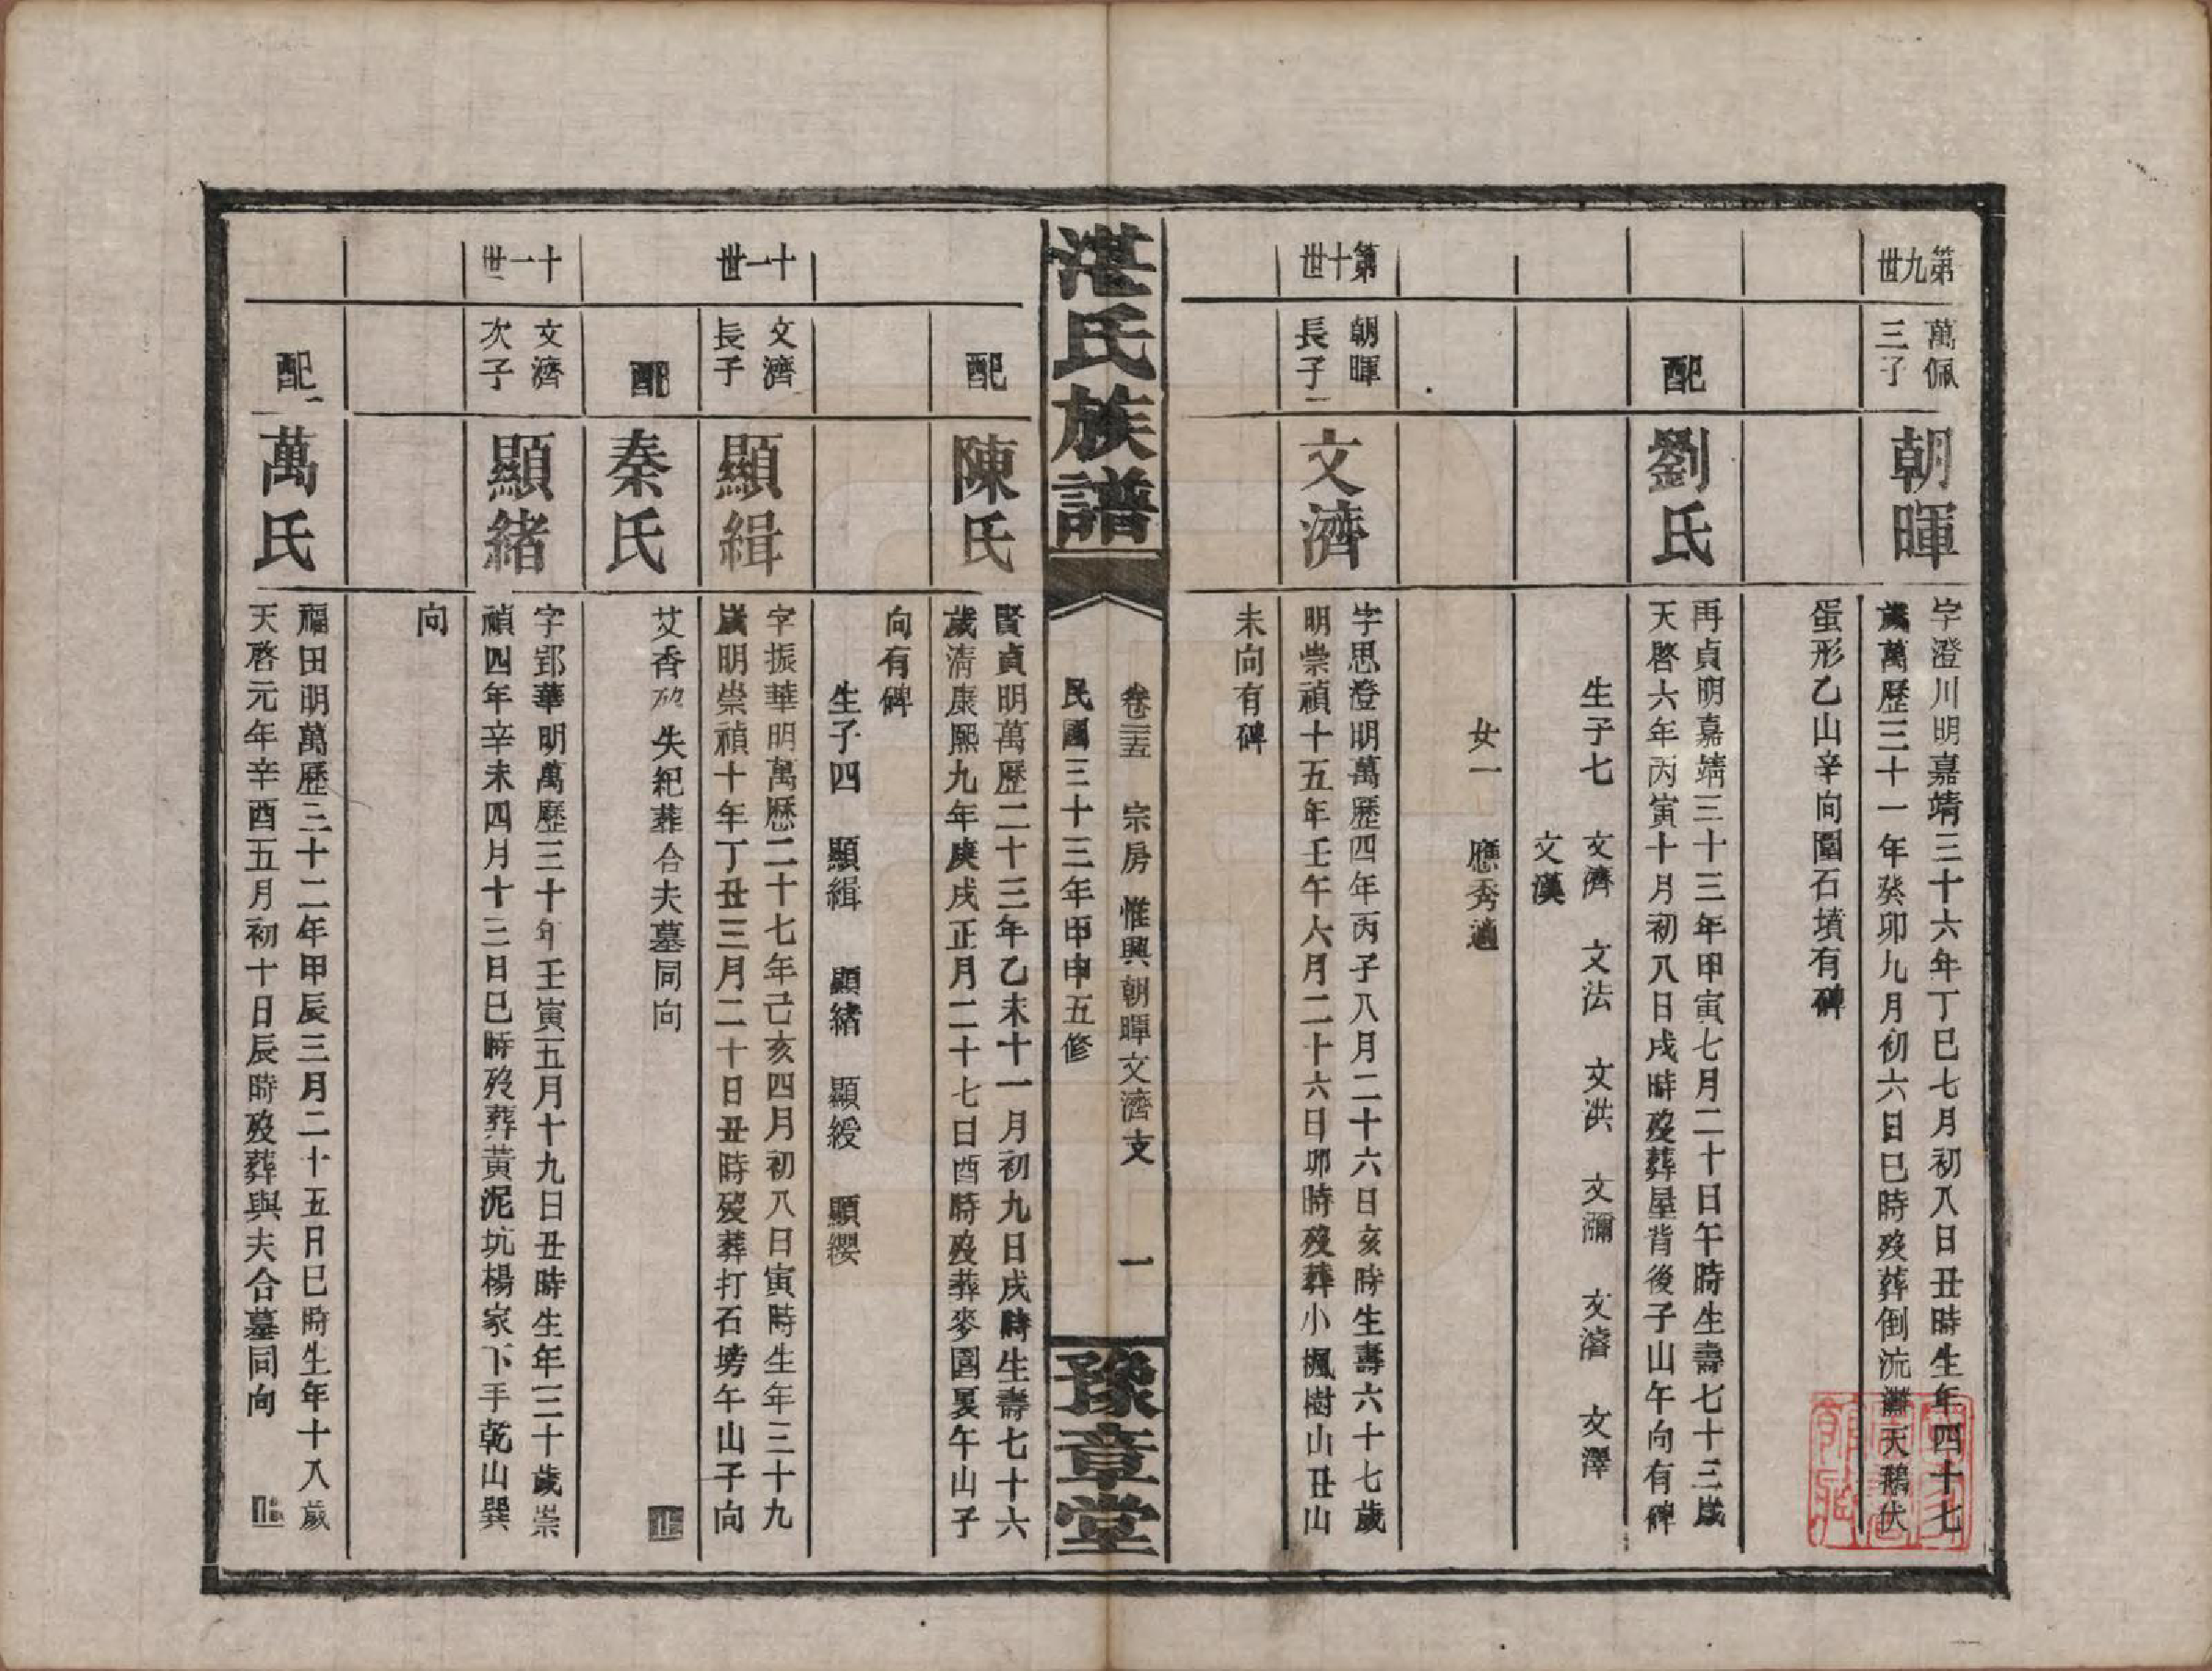 第九世
萬佩三子
朝暉
字澄川明嘉靖三十六年丁巳七月初八日丑時生年四十七
歲萬歷三十一年癸卯九月初六日巳時歿葬倒流灘天鵝伏
蛋形乙山辛向圍石墳有碑
配
劉氏
再貞明嘉靖三十三年甲寅七月二十日午時生壽七十三歲
天啓六年丙寅十月初八日戌時歿葬屋背後子山午向有碑
生子七 文濟 文法 文洪 文瀰 文濬 文澤
文漢
女一 應秀適
第十世
朝暉長子
文濟
字思澄明萬歷四年丙子八月二十六日亥時生壽六十七歲
明崇禎十五年壬午六月二十六日卯時歿葬小楓樹山丑山
未向有碑
湛氏族譜
卷三五 宗房 惟興朝暉文濟支 一
民國三十三年甲申五修
豫章堂
配
陳氏
賢貞明萬歷二十三年乙未十一月初九日戌時生壽七十六
歲清康熙九年庚戌正月二十七日酉時歿葬麥園裏午山子
向有碑
生子四 顯緝 顯緒 顯綬 顯纓
十一世
文濟長子
顯緝
字振華明萬歷二十七年己亥四月初八日寅時生年三十九
歲明崇禎十年丁丑三月二十日丑時歿葬打石塝午山子向
配
秦氏
艾香 失紀葬合夫墓同向 止
十一世
文濟次子
顯緒
字郢華明萬歷三十年壬寅五月十九日丑時生年三十歲崇
禎四年辛未四月十三日巳時歿葬黃泥坑楊家下手乾山巽
向
配
萬氏
福田明萬歷三十二年甲辰三月二十五日巳時生年十八歲
天啓元年辛酉五月初十日辰時歿葬與夫合墓同向 止